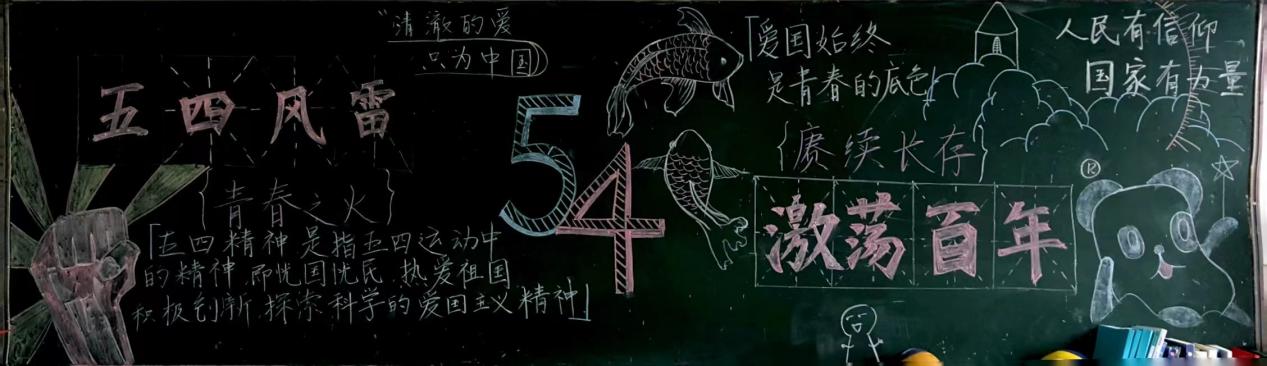 五四风雷
“清澈的爱
只为中国
{青春之火}
「五四精神是指五四运动中
的精神 即忧国忧民 热爱祖国
积极创新 探索科学的爱国主义精神」
54
「爱国始终
是青春的底色」
人民有信仰
国家有力量
{赓续长存}
激荡百年
®